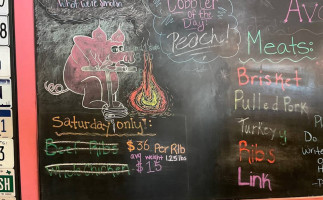 What we're smokin
Cobbler
of the
Day!
Peach!
Meats:
Brisket
Pulled Pork
Turkey
Ribs
Link
Saturday only:
Beef Ribs $36 Per Rib
avg weight 1.25 lbs
Whole chicken $15